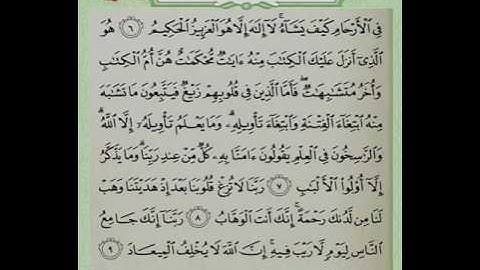 فِي الْأَرْحَامِ كَيْفَ يَشَاءُ ۚ لَا إِلَٰهَ إِلَّا هُوَ الْعَزِيزُ الْحَكِيمُ ٦ هُوَ
الَّذِي أَنزَلَ عَلَيْكَ الْكِتَابَ مِنْهُ ءَايَاتٌ مُّحْكَمَاتٌ هُنَّ أُمُّ الْكِتَابِ
وَأُخَرُ مُتَشَابِهَاتٌ ۖ فَأَمَّا الَّذِينَ فِي قُلُوبِهِمْ زَيْغٌ فَيَتَّبِعُونَ مَا تَشَابَهَ
مِنْهُ ابْتِغَاءَ الْفِتْنَةِ وَابْتِغَاءَ تَأْوِيلِهِ ۗ وَمَا يَعْلَمُ تَأْوِيلَهُ إِلَّا اللَّهُ ۗ
وَالرَّاسِخُونَ فِي الْعِلْمِ يَقُولُونَ ءَامَنَّا بِهِ كُلٌّ مِّنْ عِندِ رَبِّنَا ۗ وَمَا يَذَّكَّرُ
إِلَّا أُولُوا الْأَلْبَابِ ٧ رَبَّنَا لَا تُزِغْ قُلُوبَنَا بَعْدَ إِذْ هَدَيْتَنَا وَهَبْ
لَنَا مِن لَّدُنكَ رَحْمَةً ۚ إِنَّكَ أَنتَ الْوَهَّابُ ٨ رَبَّنَا إِنَّكَ جَامِعُ
النَّاسِ لِيَوْمٍ لَّا رَيْبَ فِيهِ ۚ إِنَّ اللَّهَ لَا يُخْلِفُ الْمِيعَادَ ٩